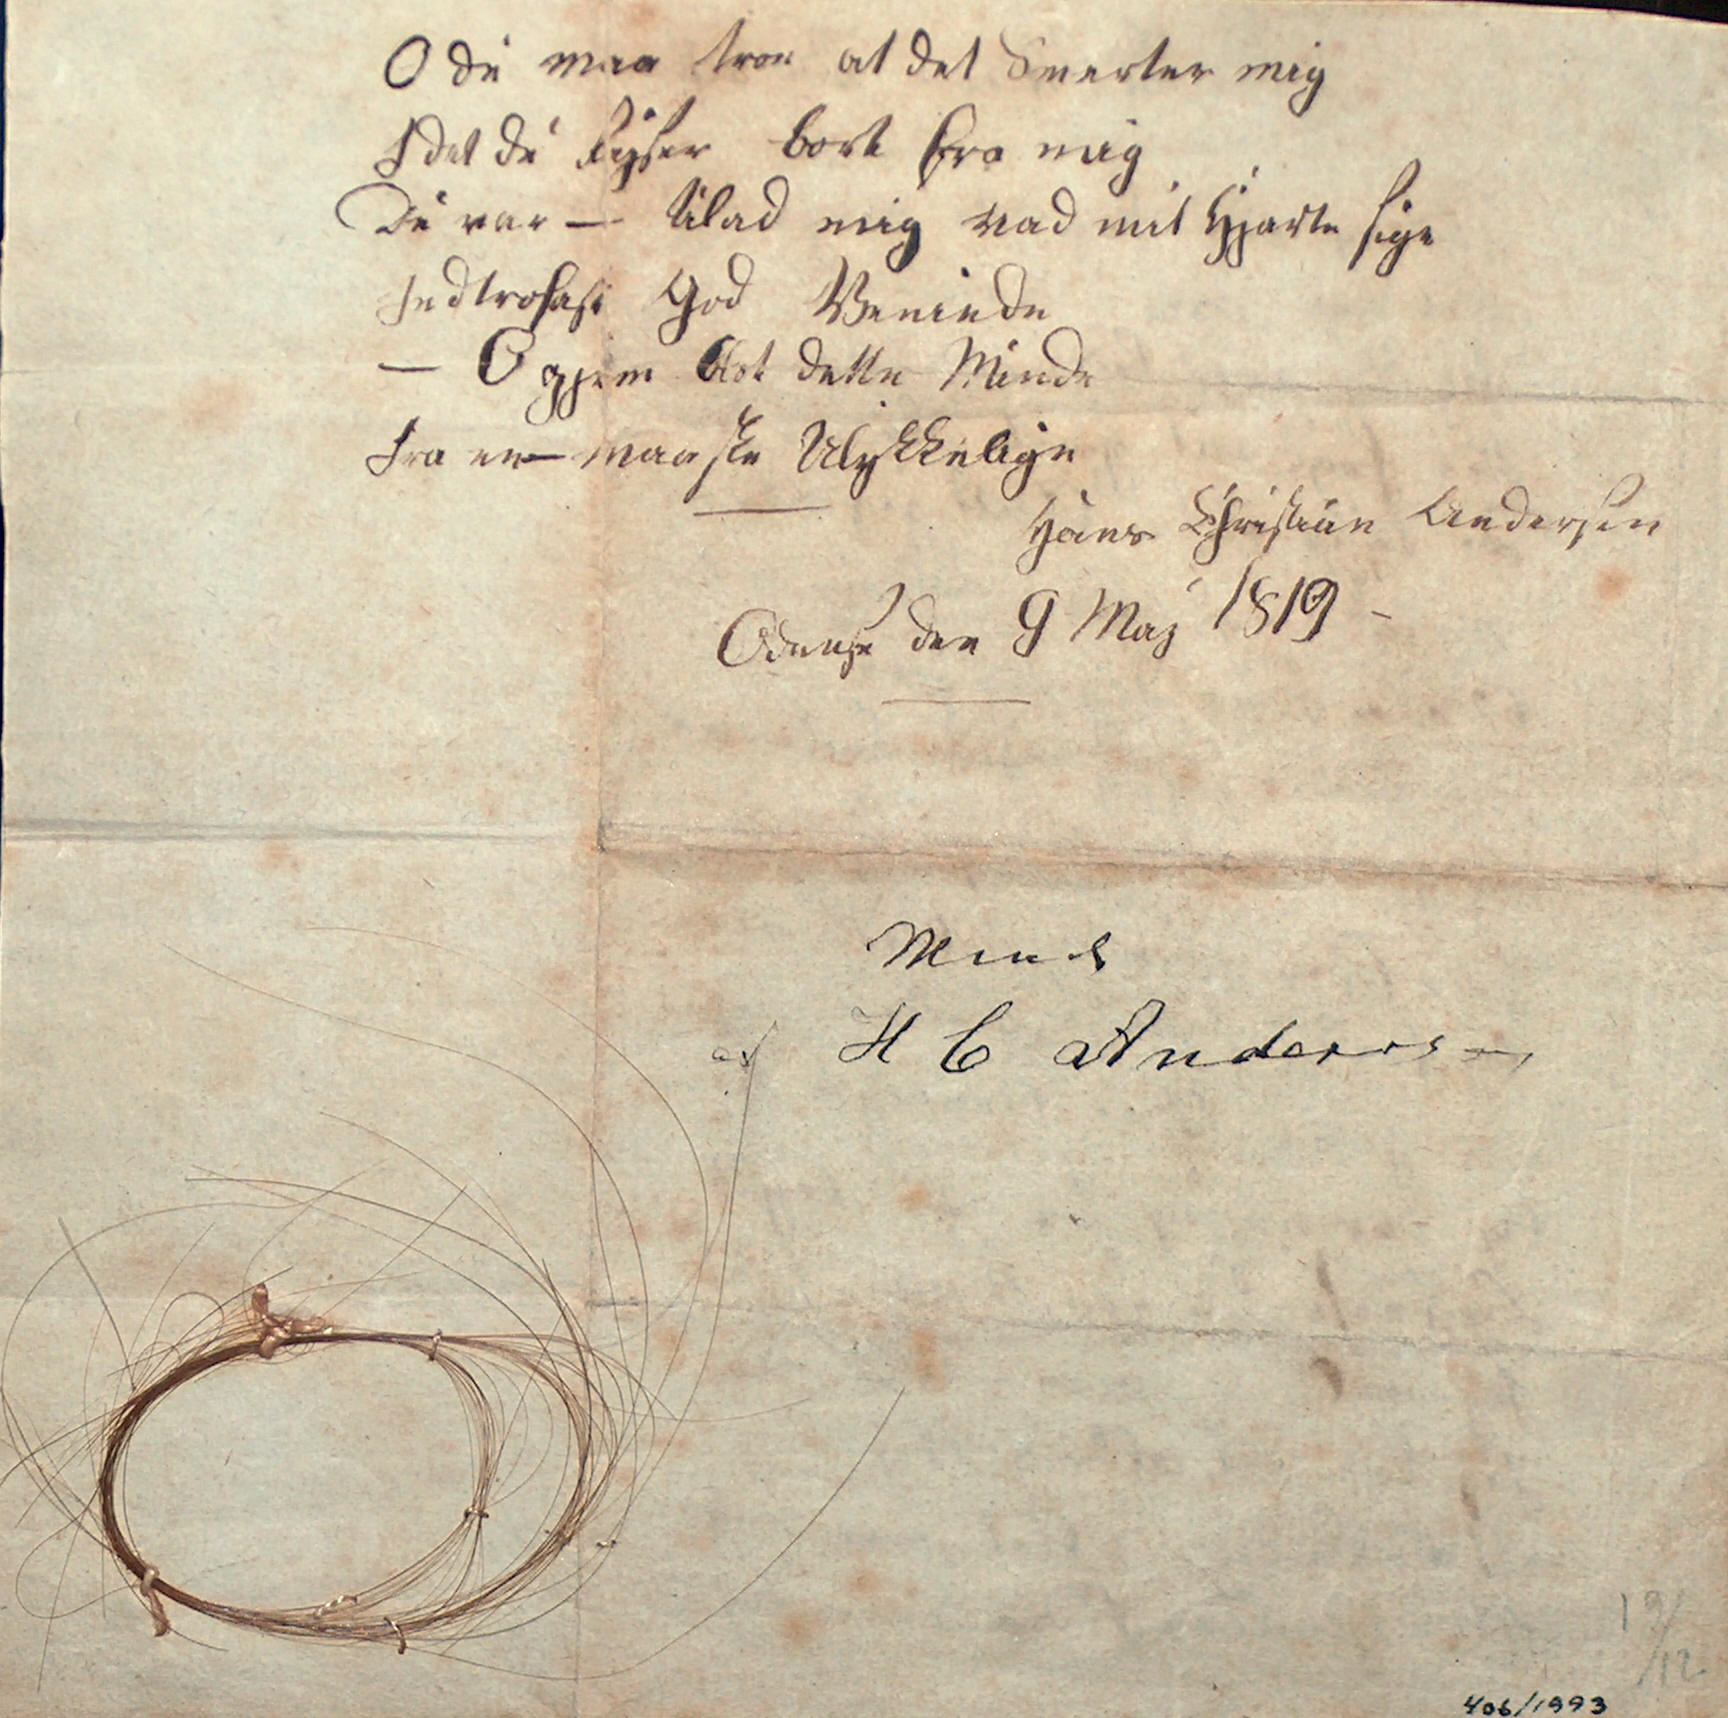 O du maa troe at det Smerter mig
I det du Rejser bort fra mig
Du var — tilad mig vad mit Hjærte sige
En trofast God Veninde
— O gjem det dette Minde
Fra en — maaske Ulykkelige
Hans Christian Andersen
Odense den 9 Maj 1819 -
Minde
af H C Andersen
19/12
406/1993